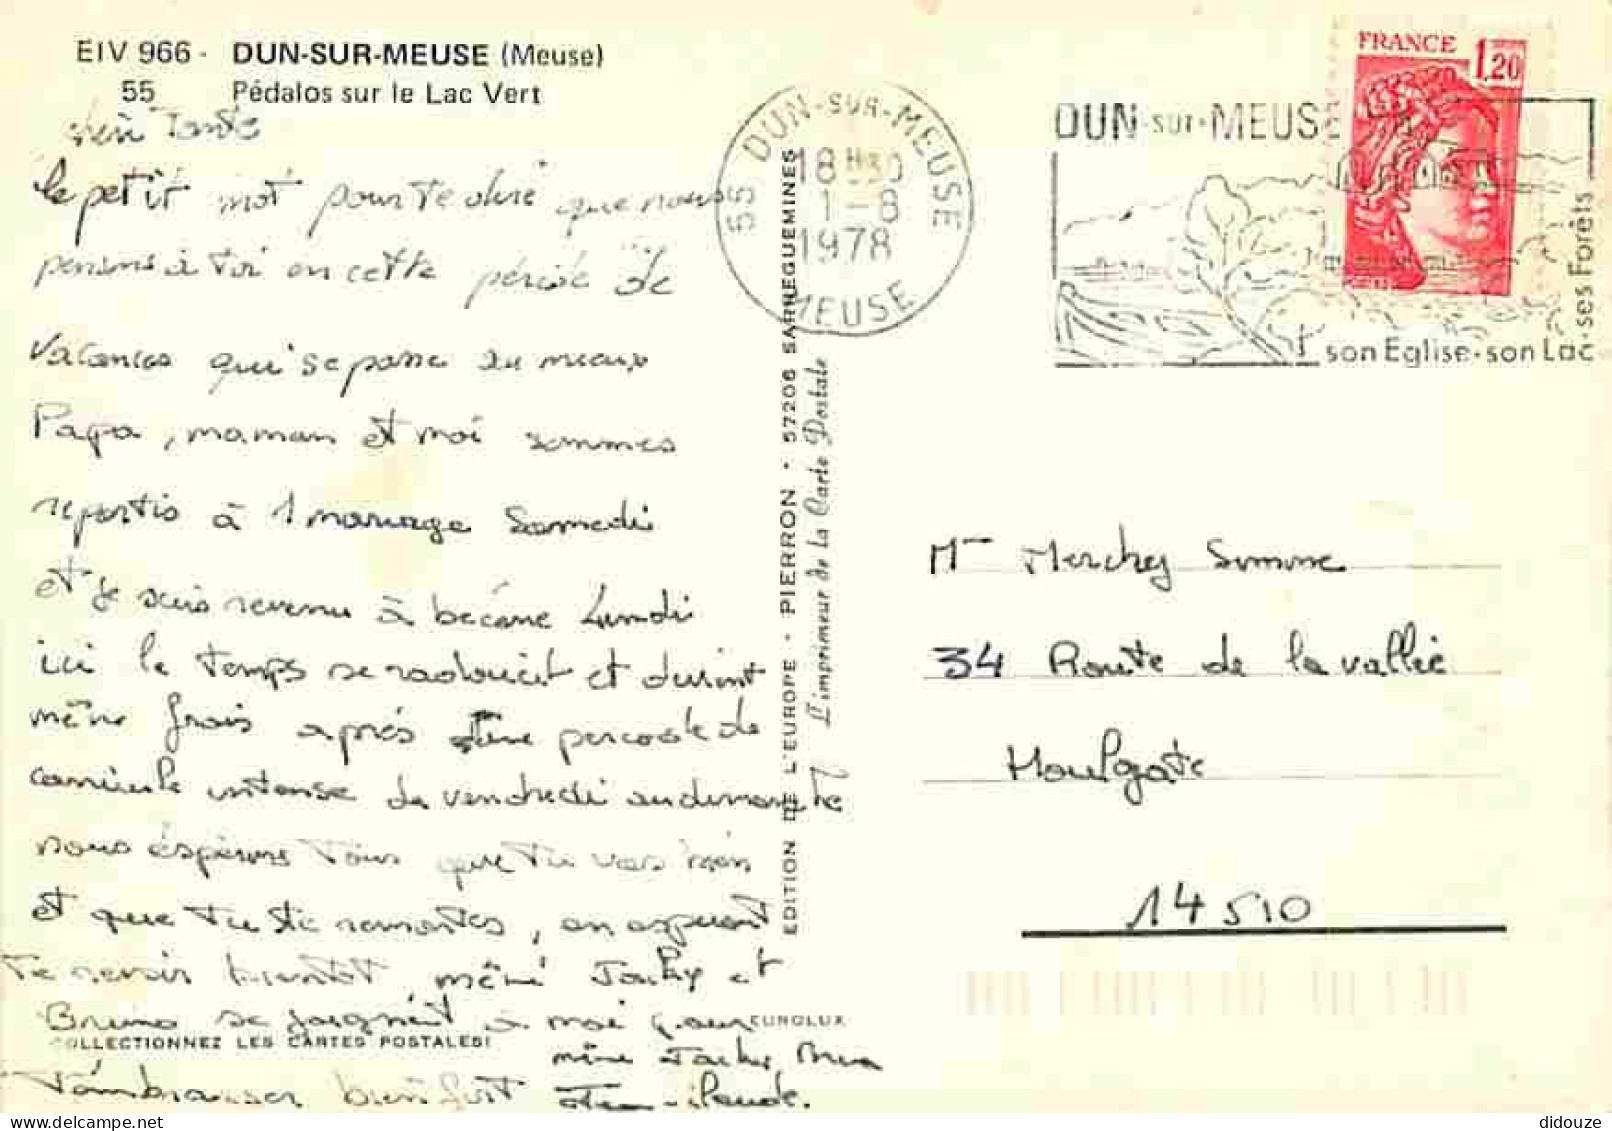 EIV 966 - DUN-SUR-MEUSE (Meuse)
55 Pédalos sur le Lac Vert
Tante
le petit mot pour te dire que nous
pensons à toi en cette période de
vacances qui se passe au mieux
Papa, maman et moi sommes
repartis à 1 mariage Samedi
et je suis revenu à bécane Lundi
ici le temps se radoucit et devient
même frais après une periode de
canicule intense de vendredi au dimanche
nous espérons tous que tu vas bien
et que tu te remontes, en espérant
te revoir bientôt, même Jacky et
Bruno se joignent à moi pour
même Jacky, Bruno
t'embrasser bien fort Jean-claude.
COLLECTIONNEZ LES CARTES POSTALES!
EUROLUX
EDITION DE L'EUROPE · PIERRON · 57206 SARREGUEMINES
L'imprimeur de la Carte Postale
55 DUN-SUR-MEUSE
18H30
1-8
1978
MEUSE
DUN-sur-MEUSE
son Eglise-son Lac
-ses Forêts
FRANCE 1,20
Merchey Simone
34 Route de la vallée
Houlgate
14510
didouze